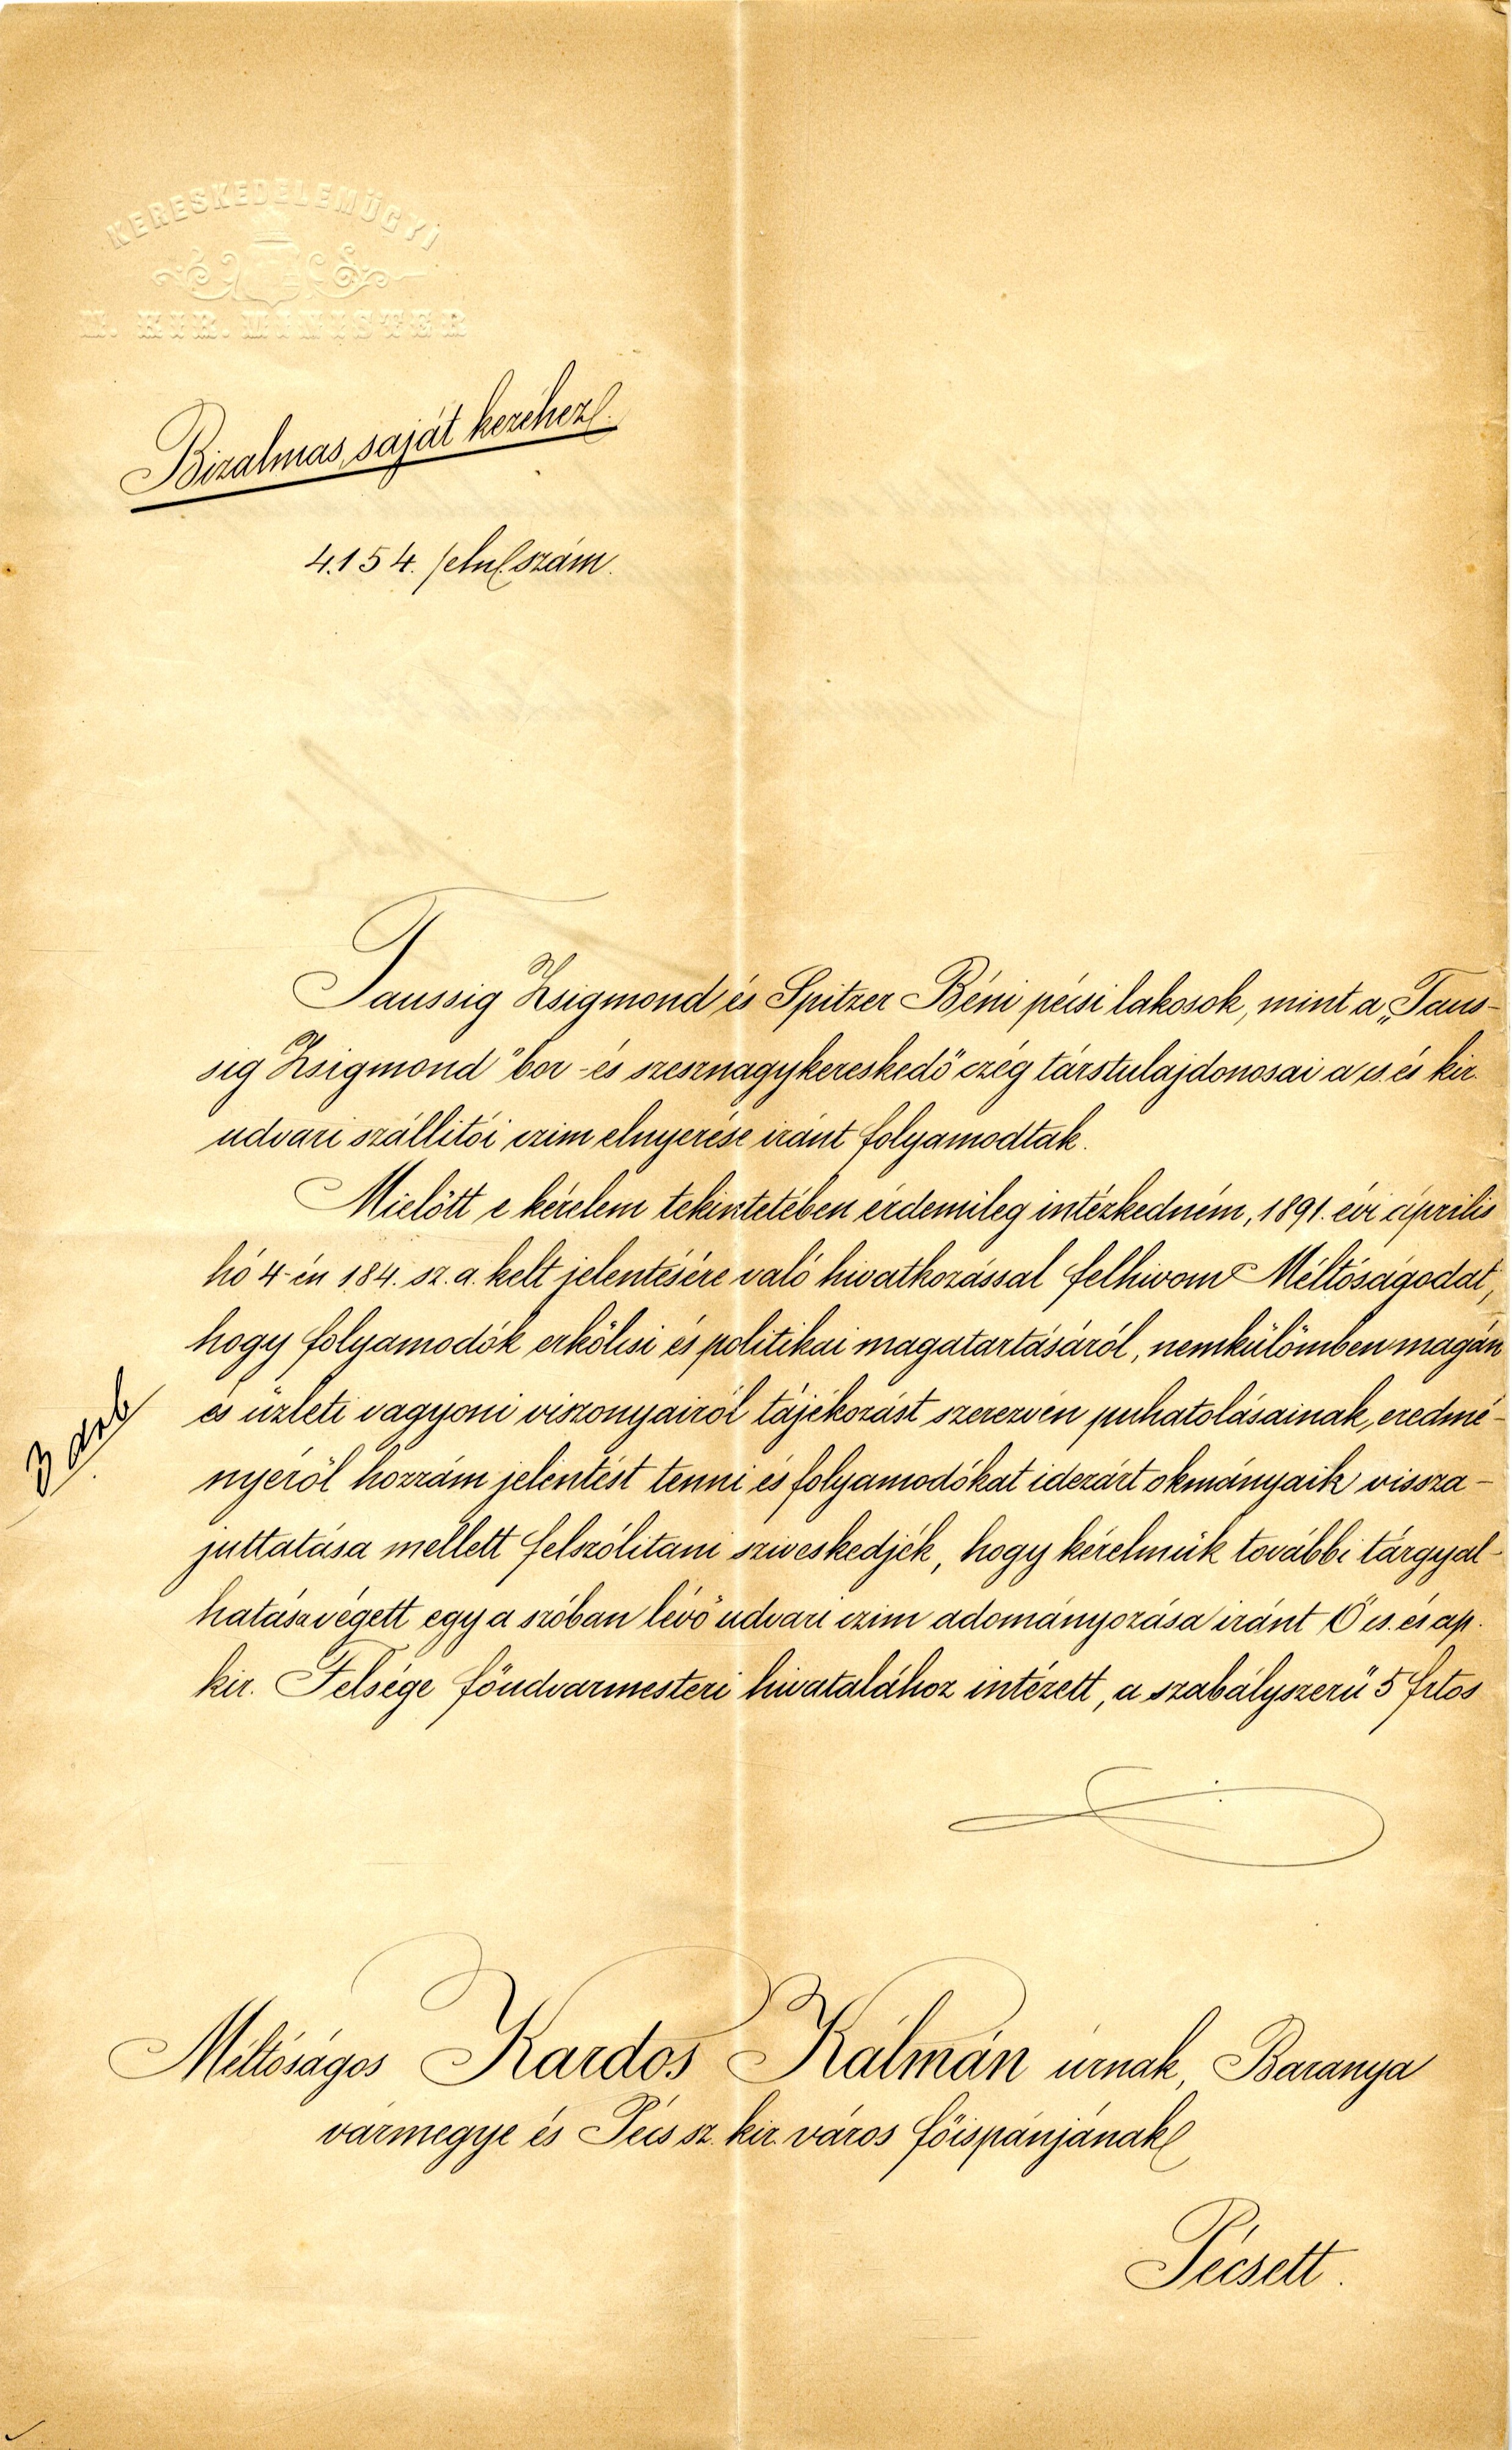 KERESKEDELEMÜGYI
M. KIR. MINISTER
Bizalmas, saját kezéhez.
4154. /eln. szám.
Taussig Zsigmond és Spitzer Béni pécsi lakosok, mint a „Taus-
sig Zsigmond" bor- és szesznagykereskedő czég társtulajdonosai a cs. és kir.
udvari szállitói czim elnyerése iránt folyamodtak.
Mielőtt e kérelem tekintetében érdemileg intézkedném, 1891. évi április
hó 4-én 184. sz. a. kelt jelentésére való hivatkozással felhivom Méltóságodat,
hogy folyamodók erkölcsi és politikai magatartásáról, nemkülömben magán
és üzleti vagyoni viszonyairól tájékozást szerezvén puhatolásainak eredmé-
nyéről hozzám jelentést tenni és folyamodókat idezárt okmányaik vissza-
juttatása mellett felszólitani sziveskedjék, hogy kérelmük további tárgyal-
hatása végett egy a szóban lévő udvari czim adományozása iránt Ő cs. és ap.
kir. Felsége főudvarmesteri hivatalához intézett, a szabályszerü 5 frtos
3 drb
Méltóságos Kardos Kálmán úrnak, Baranya
vármegye és Pécs sz. kir. város főispánjának
Pécsett.